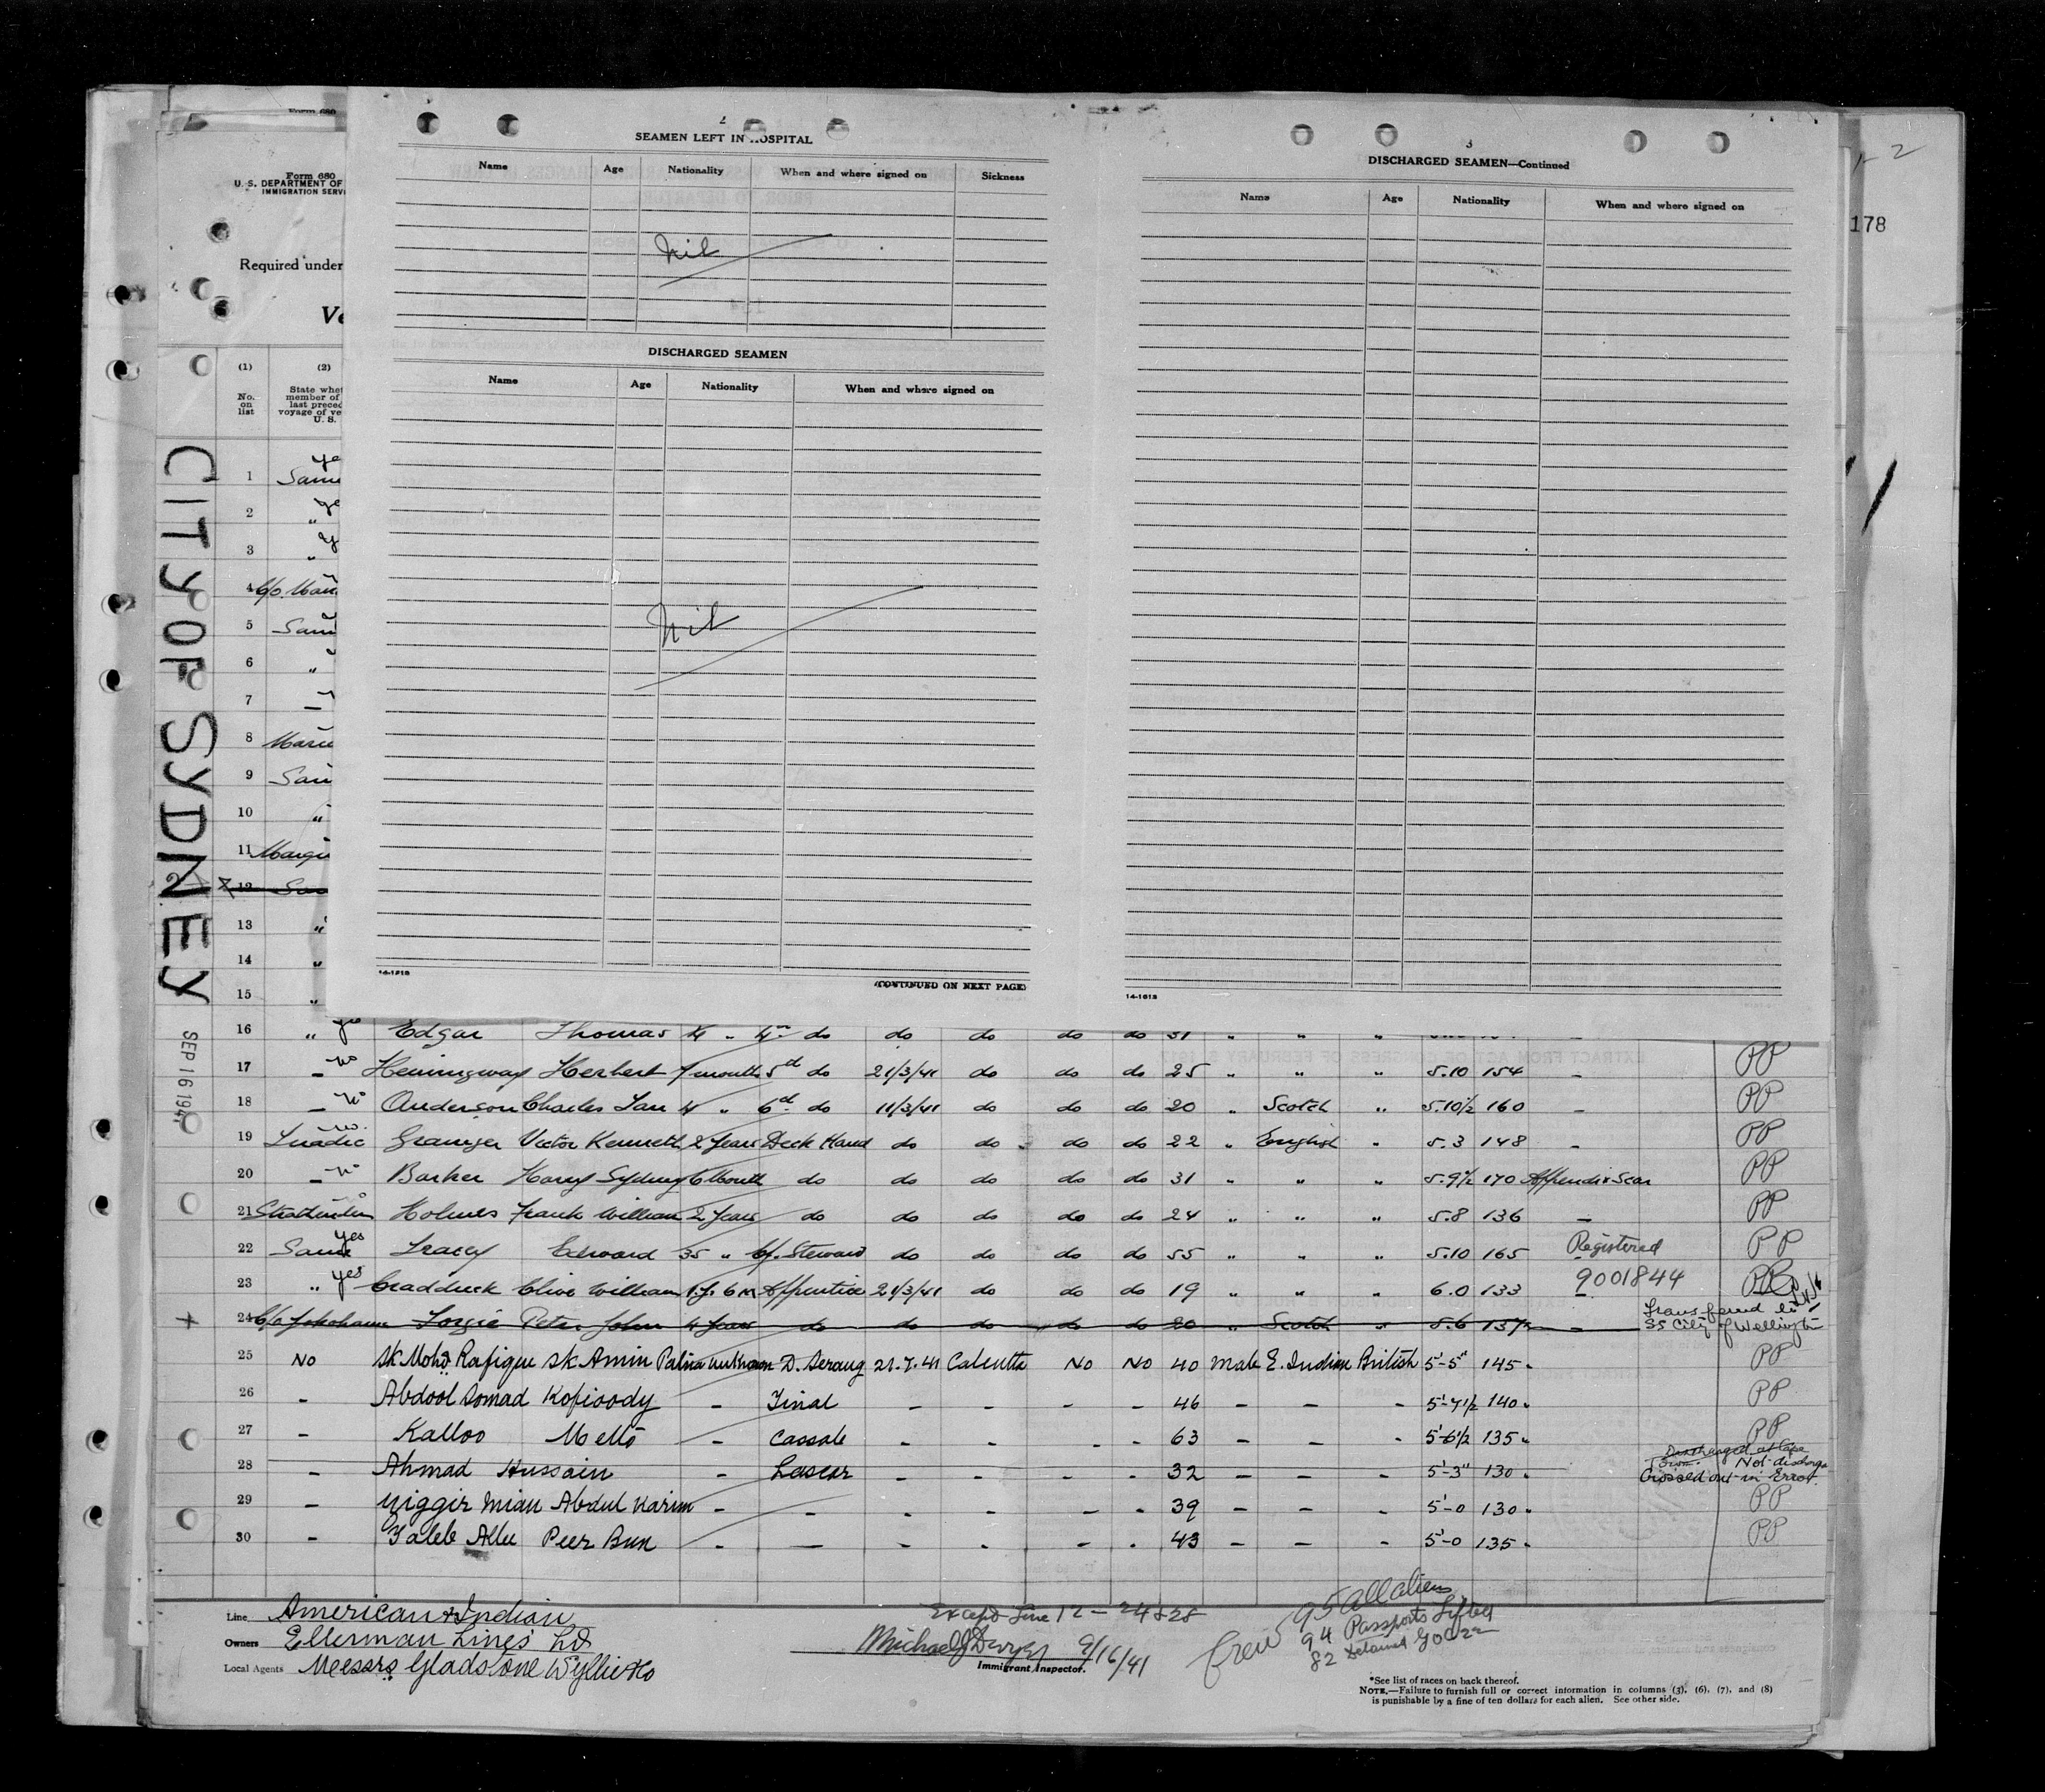 Form 680
Form 680
U. S. DEPARTMENT OF
IMMIGRATION SERV
Required under
Ve
(1) (2)
No. on list
State whet
member of
last preced
voyage of ve
U. S.
CITY OF SYDNEY
SEP 16 194
2
SEAMEN LEFT IN HOSPITAL
Name Age Nationality When and where signed on Sickness
Nil
DISCHARGED SEAMEN
Name Age Nationality When and where signed on
Nil
14-1218
(CONTINUED ON NEXT PAGE)
3
DISCHARGED SEAMEN—Continued
Name Age Nationality When and where signed on
14-1218
1-2
178
1 Same
2 "
3 "
4
5 Sam
6 "
7
8
9 Sam
10 "
11
12
13 "
14 "
15 "
16 " yes Edgar Thomas 4 " 4th do do do do do 31 " " "
17 – No Hemingway Herbert 7 months 5th do 21/3/41 do do do 25 " " " 5.10 154 – PP
18 – No Anderson Charles Ian 4 " 6th do 11/3/41 do do do 20 " Scotch " 5.10½ 160 – PP
19 No Grainger Victor Kenneth 2 Years Deck Hand do do do do 22 " English " 5.3 148 – PP
20 – No Barker Harry Sydney 6 Month do do do do do 31 " " " 5.9½ 170 Appendix Scar PP
21 Holmes Frank William 2 Years do do do do do 24 " " " 5.8 136 – PP
22 Same yes Tracey Edward 35 " Cf. Steward do do do do 55 " " " 5.10 165 Registered PP
23 " yes Cradduck Clive William 1 y. 6 m Apprentice 21/3/41 do do do 19 " " " 6.0 133 9001844
24 Peter John 4 Years do do do do do 20 " Scotch " 5.6 137 – Transferred to SS City of Wellington
25 NO Sk. Mohd Rafique Sk. Amin Patina unknown D. Serang 21.7.41 Calcutta NO NO 40 Male E. Indian British 5'-5" 145 PP
26 – Abdool Somad Kofioody – Tinal – – – – 46 – – – 5'-7½ 140 PP
27 – Kalloo Mello – Cassab – – – – 63 – – – 5'-6½ 135 PP
28 – Ahmad Hussain – Lascar – – – – 32 – – – 5'-3" 130 Discharged at Cape Town. Not discharge Crossed out in Error
29 – Yiggir Mian Abdul Karim – – – – – – 39 – – – 5'-0 130 PP
30 – Taleb Allee Peer Bux – – – – – – 43 – – – 5'-0 135 PP
Line American & Indian
Owners Ellerman Lines Ld
Local Agents Messrs Gladstone Wyllie & Co
Except Line 12 – 24 & 28
Michael J Dwyer 9/16/41
Immigrant Inspector.
Crew 95 all aliens
94 Passports Lifted
82 Detained
*See list of races on back thereof.
NOTE.—Failure to furnish full or correct information in columns (3), (6), (7), and (8)
is punishable by a fine of ten dollars for each alien. See other side.